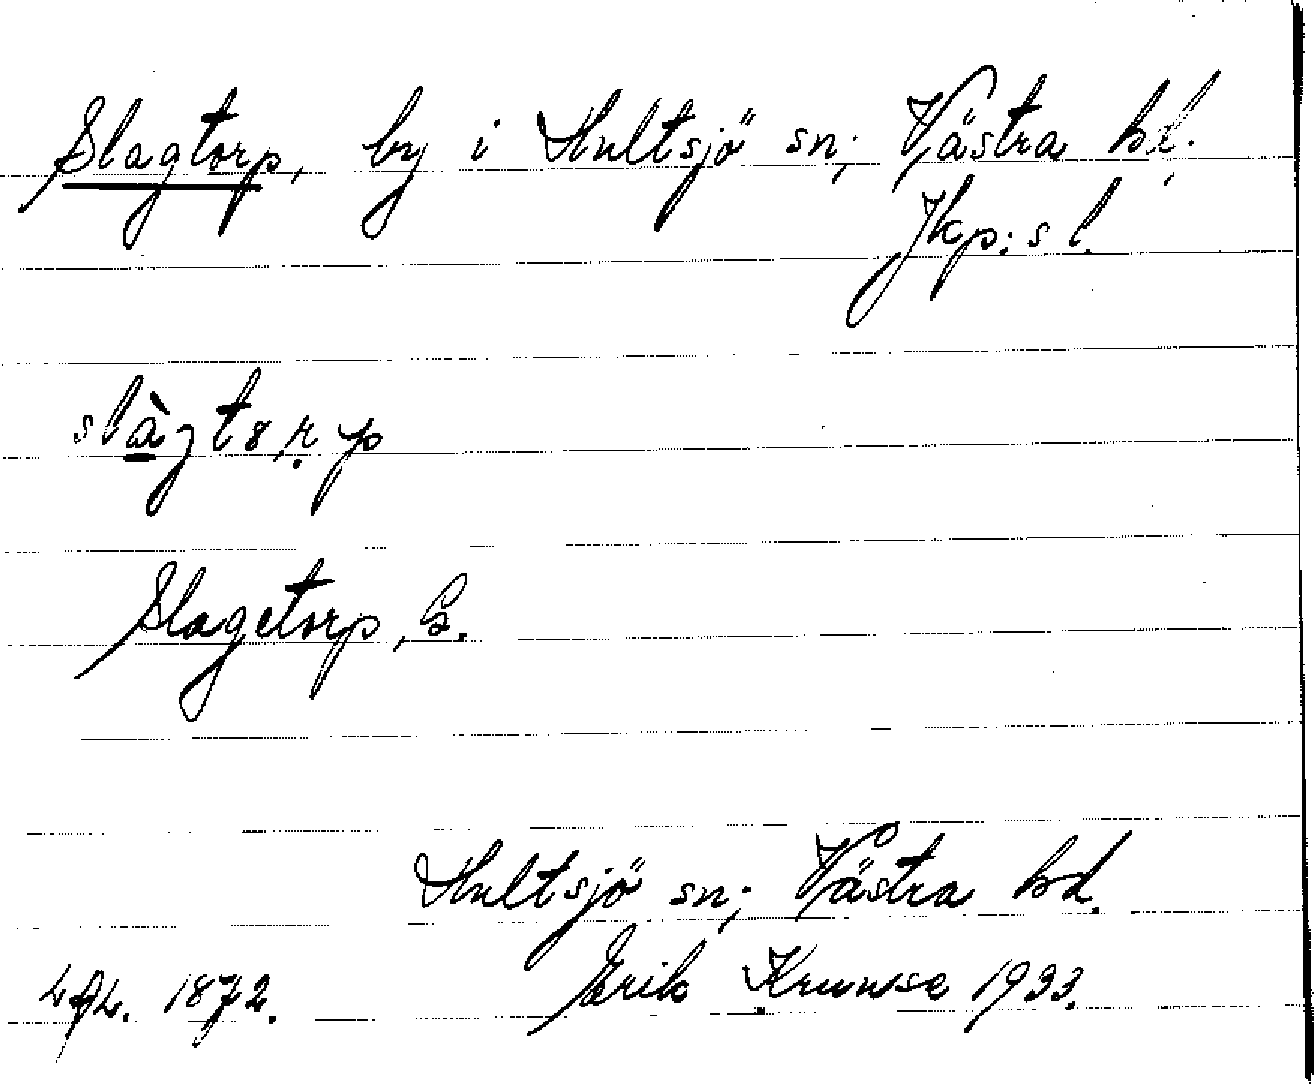 Slagtorp, by i Hultsjö sn; Västra hd.
Jkp:s l.
slàgtørp
Slagetorp, G.
Hultsjö sn; Västra hd.
1872. Erik 1933.